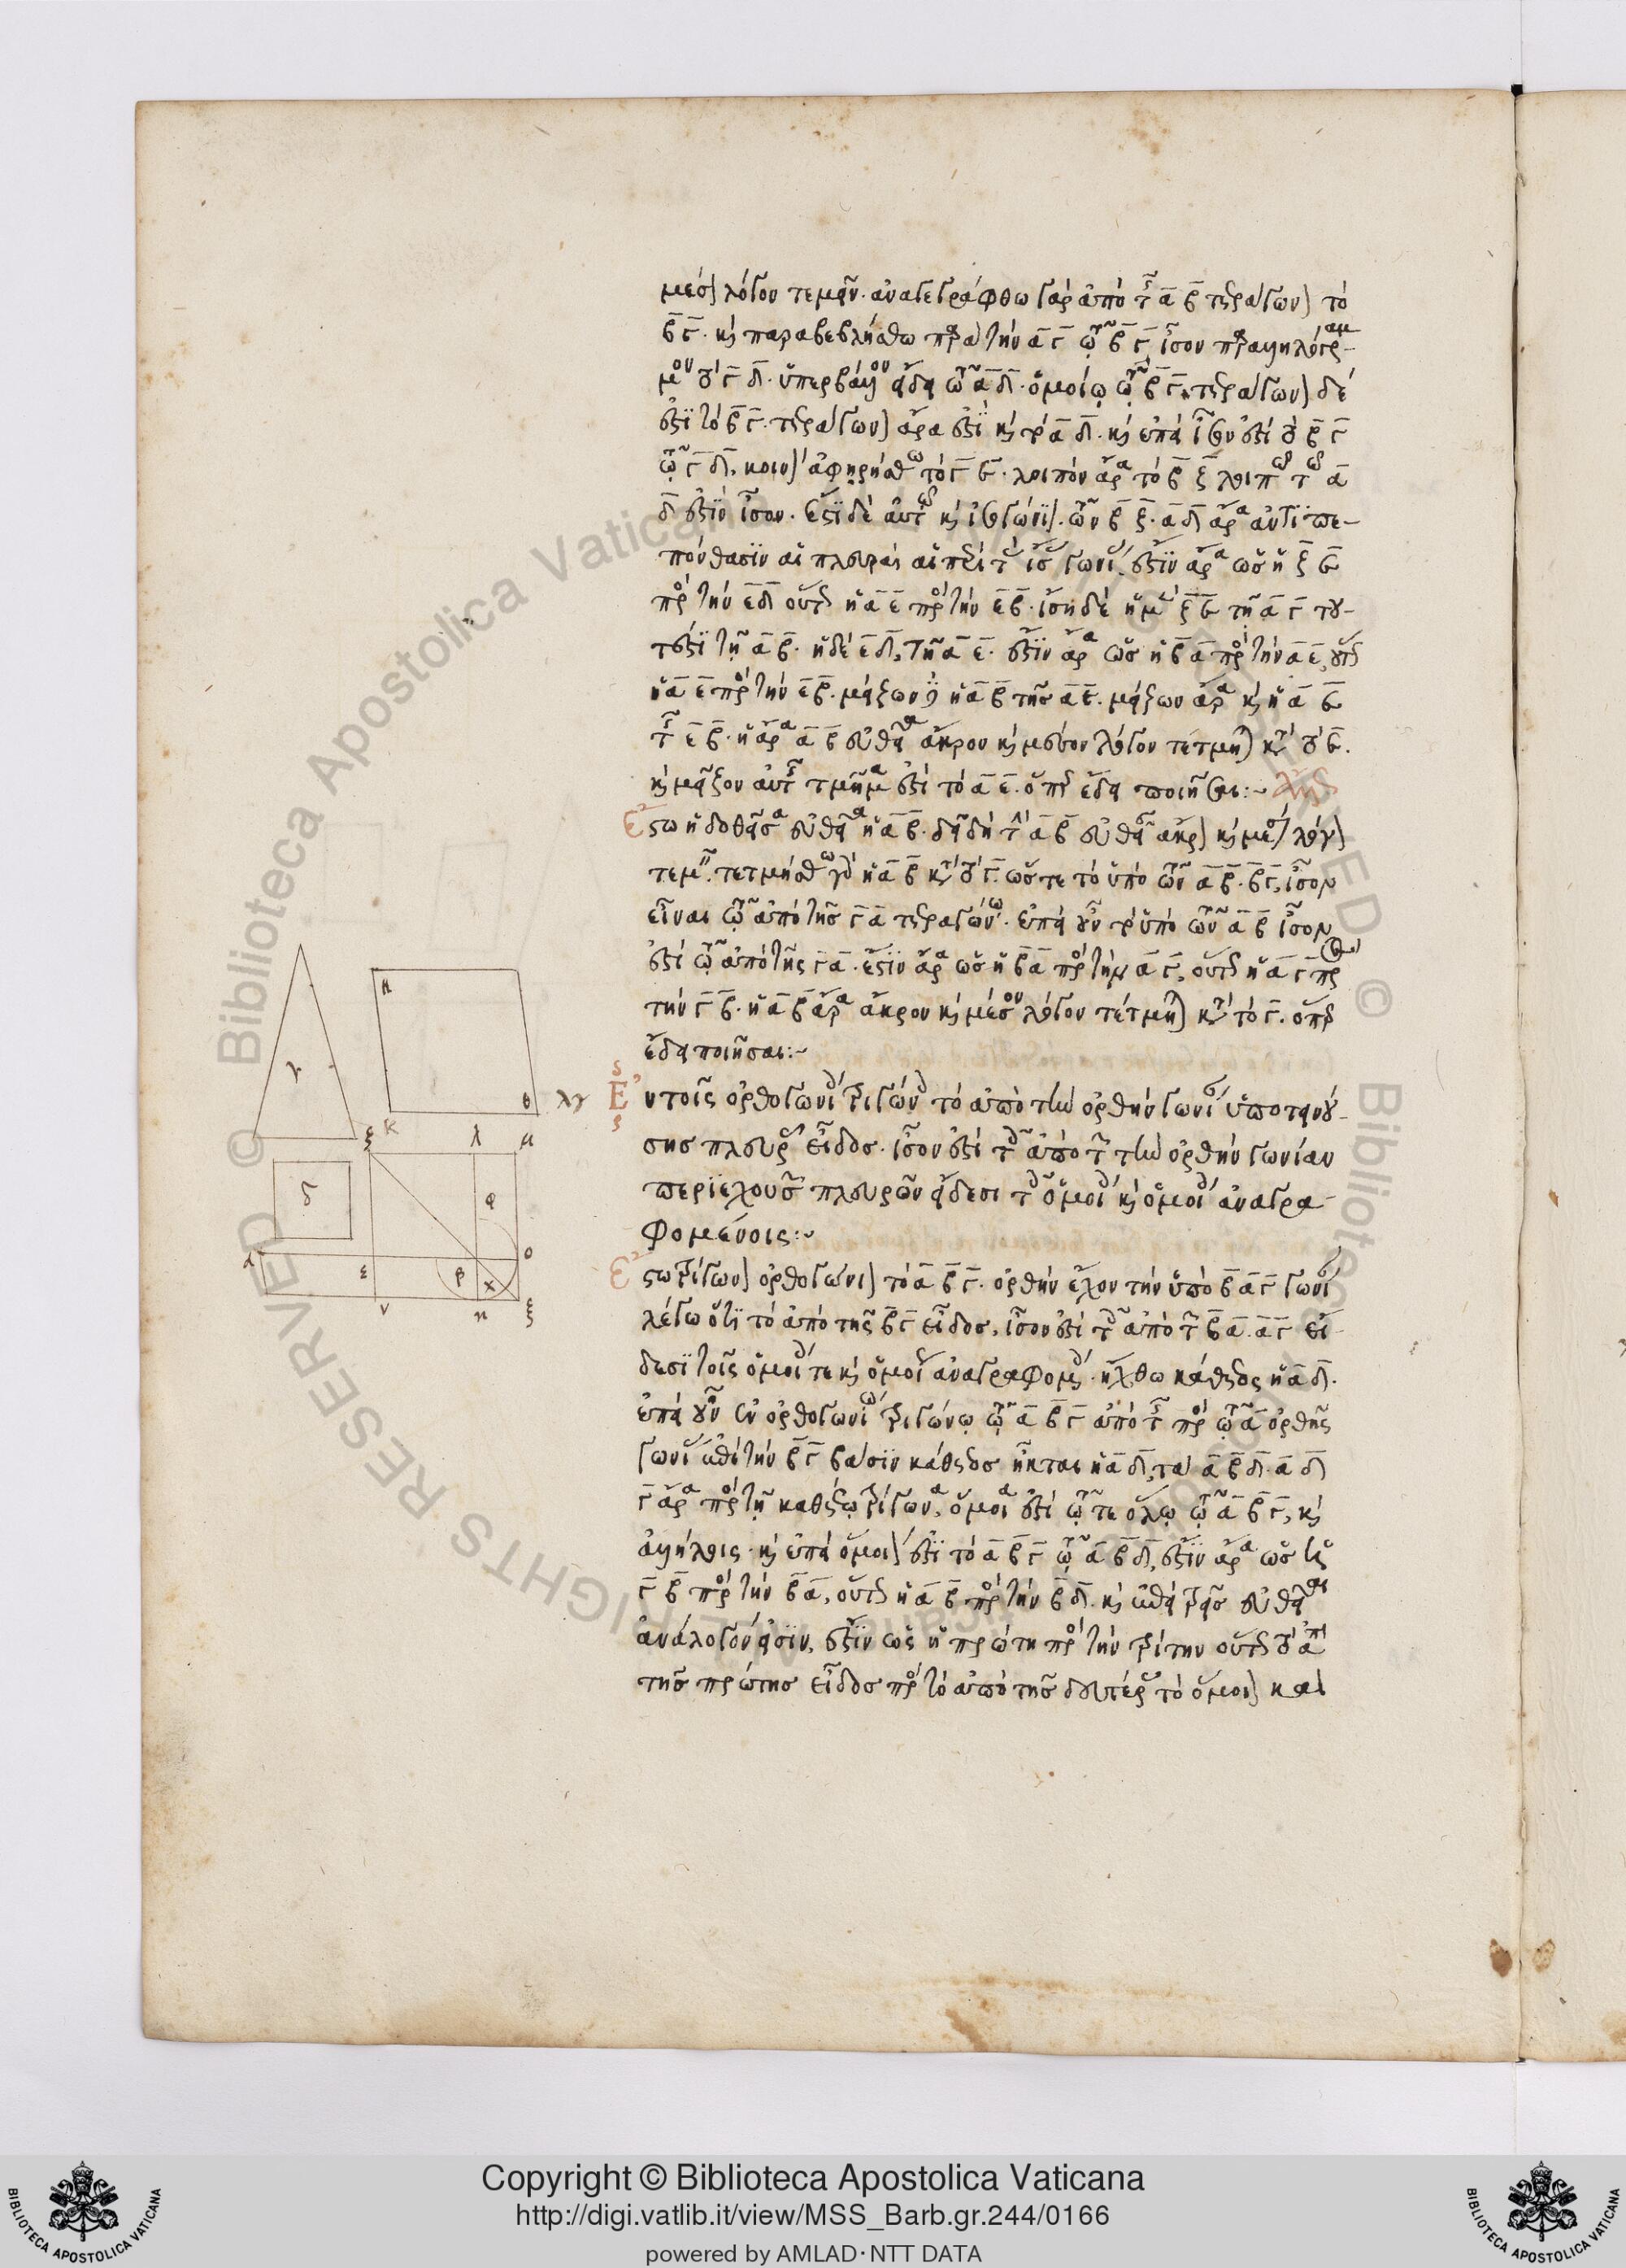 μέσον λόγον τεμεῖν. ἀναγεγράφθω γὰρ ἀπὸ τῆς α β τετράγωνον τὸ
β γ. καὶ παραβεβλήσθω παρὰ τὴν α γ τῷ β γ ἴσον παραλληλόγραμ-
μον τὸ γ δ. ὑπερβάλλον εἴδει τῷ α δ. ὁμοίῳ τῷ β γ. τετράγωνον δέ
ἐστι τὸ β γ. τετράγωνον ἄρα ἐστὶ καὶ τὸ α δ. καὶ ἐπεὶ ἴσον ἐστὶ τὸ β γ
τῷ γ δ. κοινὸν ἀφῃρήσθω τὸ γ ε. λοιπὸν ἄρα τὸ β ζ λοιπῷ τῷ α
δ ἐστὶν ἴσον. ἔστι δὲ αὐτῷ καὶ ἰσογώνιον. τῶν β ζ. α δ ἄρα ἀντιπε-
πόνθασιν αἱ πλευραὶ αἱ περὶ τὰς ἴσας γωνίας. ἔστιν ἄρα ὡς ἡ ζ ε
πρὸς τὴν ε δ οὕτως ἡ α ε πρὸς τὴν ε β. ἴση δὲ ἡ μὲν ζ ε τῇ α γ του-
τέστι τῇ α β. ἡ δὲ ε δ, τῇ α ε. ἔστιν ἄρα ὡς ἡ β α πρὸς τὴν α ε, οὕτως
ἡ α ε πρὸς τὴν ε β. μείζων δὲ ἡ α β τῆς α ε. μείζων ἄρα καὶ ἡ α ε
τῆς ε β. ἡ ἄρα α β εὐθεῖα ἄκρον καὶ μέσον λόγον τέτμηται κατὰ τὸ ε.
καὶ μεῖζον αὐτῆς τμῆμά ἐστι τὸ α ε. ὅπερ ἔδει ποιῆσαι:~ ἄλλως
Ἔστω ἡ δοθεῖσα εὐθεῖα ἡ α β. δεῖ δὴ τὴν α β εὐθεῖαν ἄκρον καὶ μέσον λόγον
τεμεῖν. τετμήσθω γὰρ ἡ α β κατὰ τὸ γ. ὥστε τὸ ὑπὸ τῶν α β. β γ, ἴσον
εἶναι τῷ ἀπὸ τῆς γ α τετραγώνῳ. ἐπεὶ οὖν τὸ ὑπὸ τῶν α β ἴσον
ἐστὶ τῷ ἀπὸ τῆς γ α. ἔστιν ἄρα ὡς ἡ β α πρὸς τὴν α γ, οὕτως ἡ α γ πρὸς
τὴν γ β. ἡ α β ἄρα ἄκρον καὶ μέσον λόγον τέτμηται κατὰ τὸ γ. ὅπερ
ἔδει ποιῆσαι:~
λγ Ἐν τοῖς ὀρθογωνίοις τριγώνοις τὸ ἀπὸ τὴν ὀρθὴν γωνίαν ὑποτεινού-
σης πλευρᾶς εἶδος. ἴσον ἐστὶ τοῖς ἀπὸ τῶν τὴν ὀρθὴν γωνίαν
περιεχουσῶν πλευρῶν εἴδεσι τοῖς ὁμοίοις καὶ ὁμοίως ἀναγρα-
φομένοις:~
Ἔστω τρίγωνον ὀρθογώνιον τὸ α β γ. ὀρθὴν ἔχον τὴν ὑπὸ β α γ γωνίαν
λέγω ὅτι τὸ ἀπὸ τῆς β γ εἶδος, ἴσον ἐστὶ τοῖς ἀπὸ τῶν β α. α γ εἴ-
δεσι τοῖς ὁμοίοις τε καὶ ὁμοίως ἀναγραφομένοις. ἤχθω κάθετος ἡ α δ.
ἐπεὶ οὖν ἐν ὀρθογωνίῳ τριγώνῳ τῷ α β γ ἀπὸ τῆς πρὸς τῷ α ὀρθῆς
γωνίας ἐπὶ τὴν β γ βάσιν κάθετος ἦκται ἡ α δ, τὰ α β δ. α δ
γ ἄρα πρὸς τῇ καθέτῳ τρίγωνα, ὅμοιά ἐστι τῷ τε ὅλῳ τῷ α β γ, καὶ
ἀλλήλοις. καὶ ἐπεὶ ὅμοιόν ἐστι τὸ α β γ τῷ α β δ, ἔστιν ἄρα ὡς ἡ
γ β πρὸς τὴν β α, οὕτως ἡ α β πρὸς τὴν β δ. καὶ ἐπεὶ τρεῖς εὐθεῖαι
ἀνάλογόν εἰσιν, ἔστιν ὡς ἡ πρώτη πρὸς τὴν τρίτην οὕτως τὸ ἀπὸ
τῆς πρώτης εἶδος πρὸς τὸ ἀπὸ τῆς δευτέρας τὸ ὅμοιον καὶ
Copyright © Biblioteca Apostolica Vaticana
http://digi.vatlib.it/view/MSS_Barb.gr.244/0166
powered by AMLAD·NTT DATA